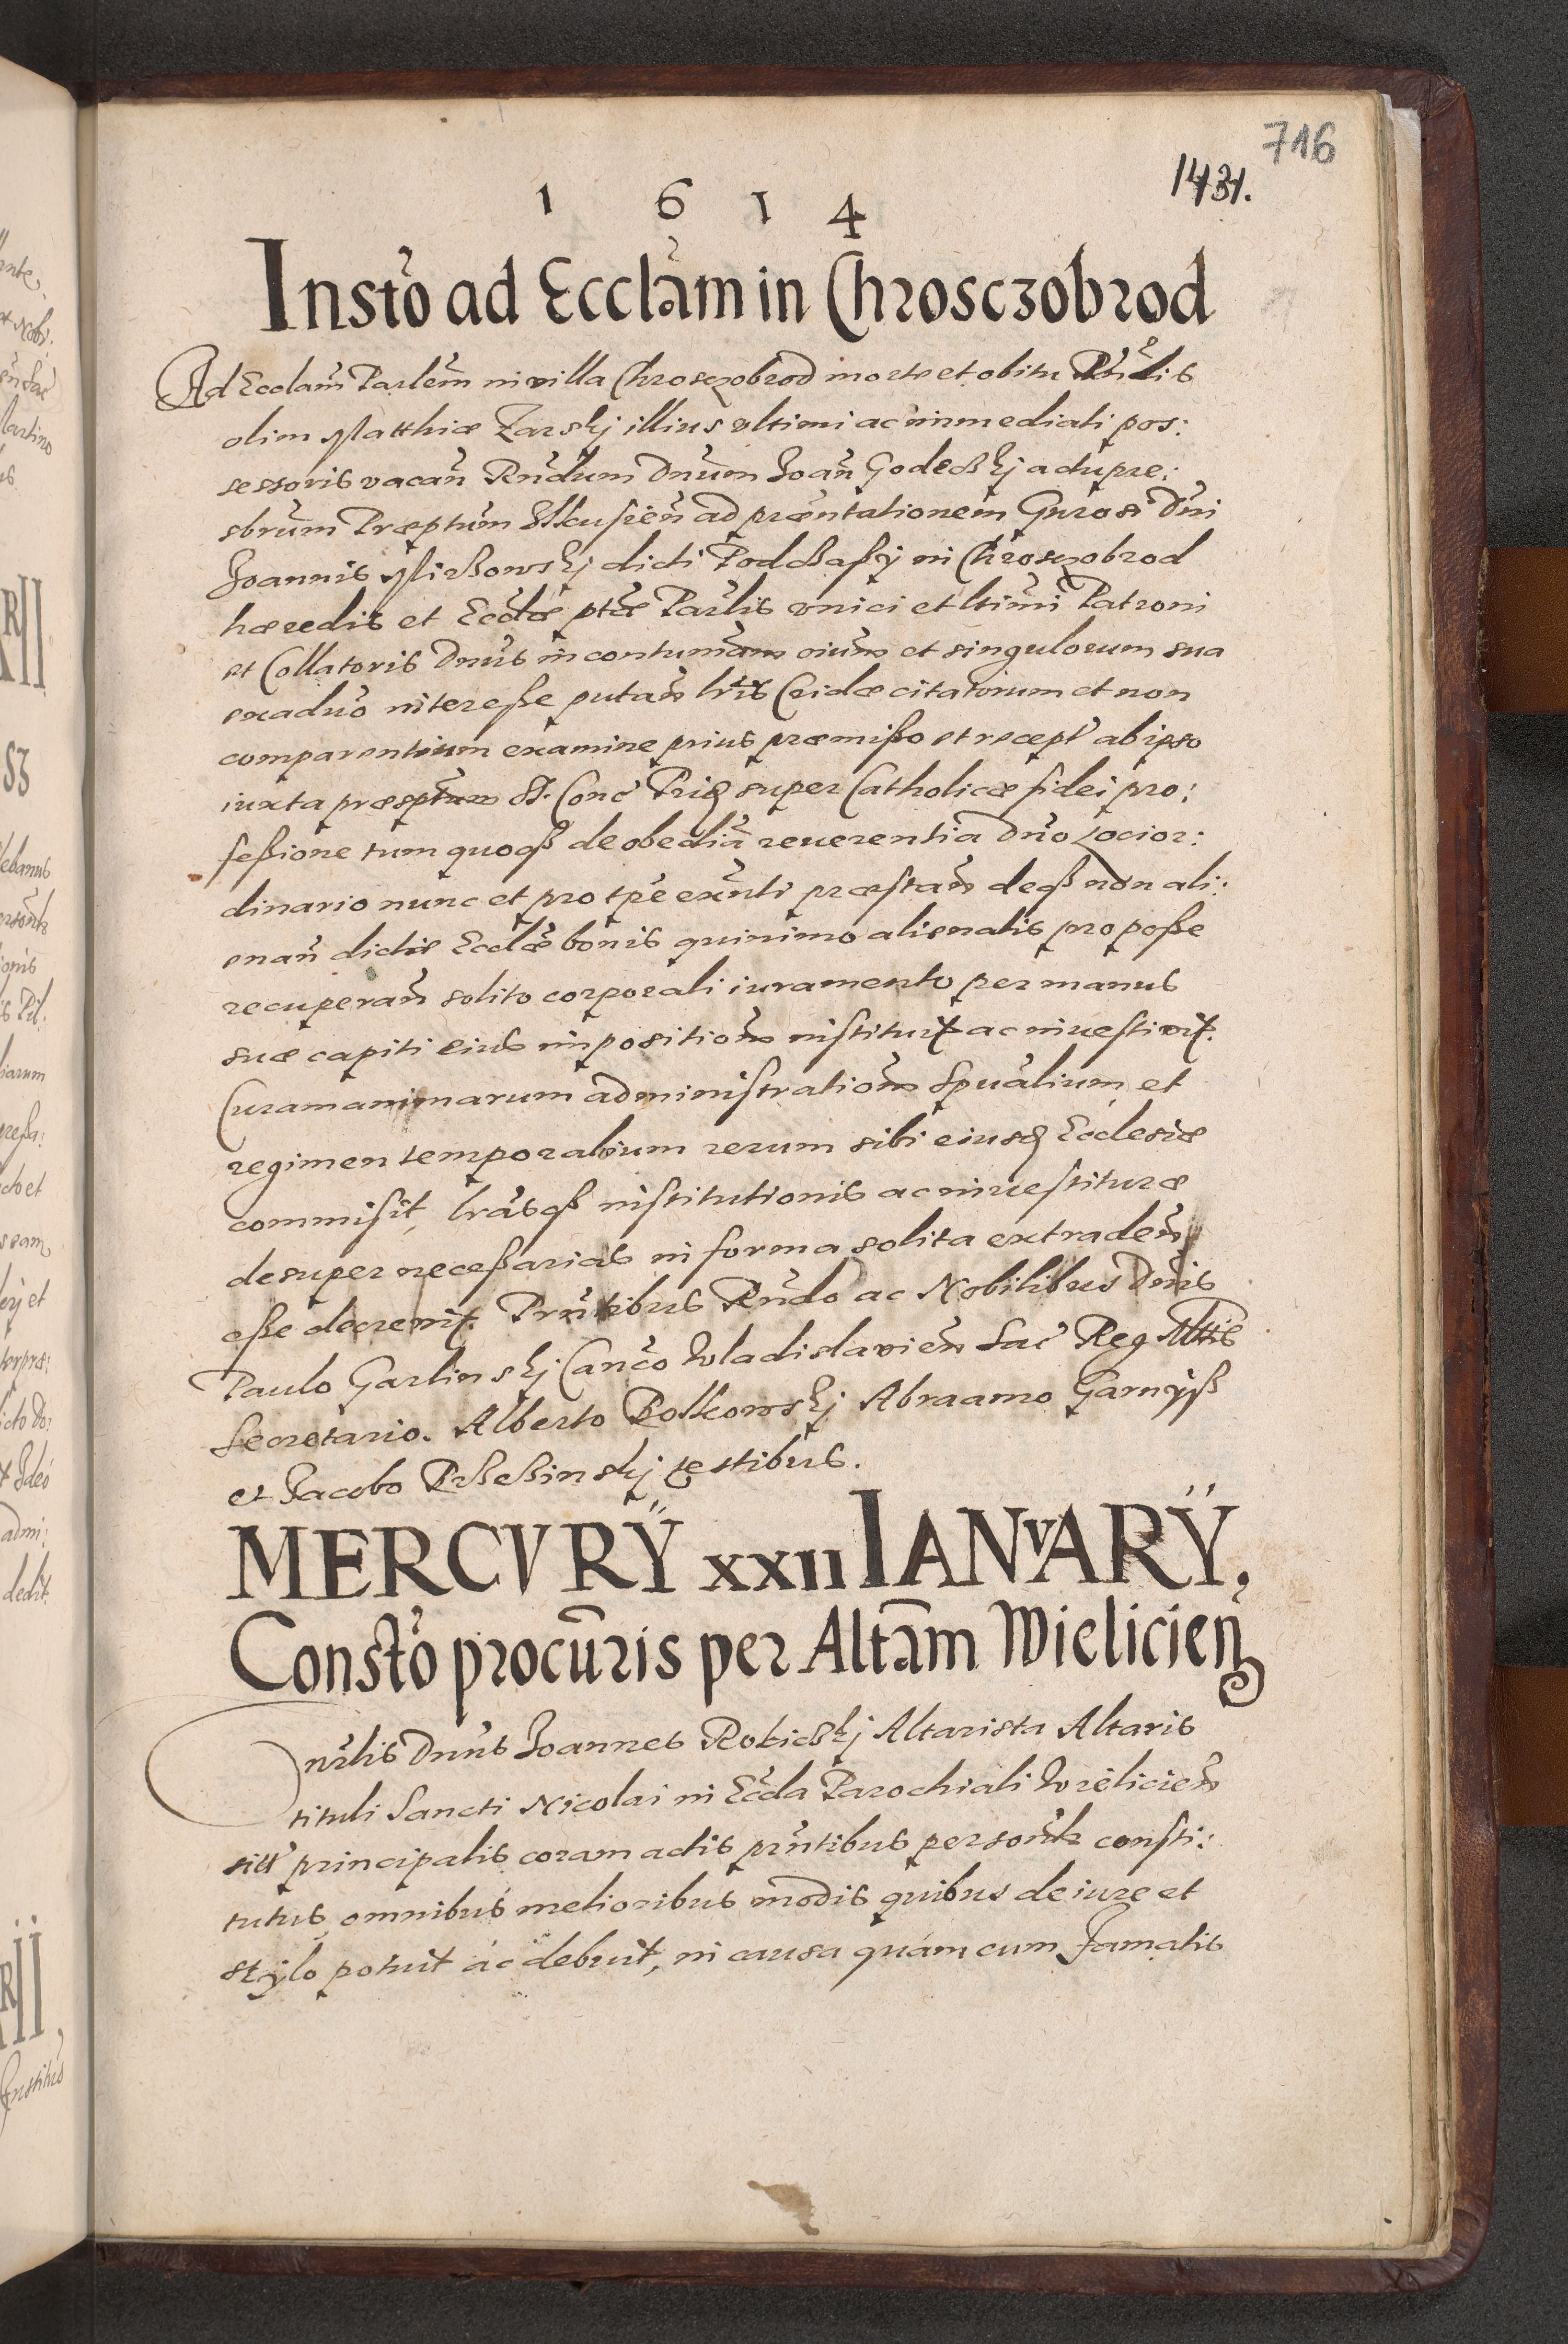 716
1431.
1 6 1 4
Instō ad Ecclam in Chrosczobrod
Ad Ecclam Parlem in villa Chrosczobrod morte et obitu Rndis
olim Matthiæ Zarskj illius vltimi ac immediati pos:
sessoris vacan Rndum Dnum Joan Godeckj adu pre:
sbrum Præptum Ilkusien ad præntationem Gnrosi Dni
Joannis Mirßowskj dicti Podczaßÿ in Chrosczobrod
hæredis et Ecclæ ptæ Parlis vnici et ltimi Patroni
et Collatoris Dnus in contumam oium et singulorum sua
exaduo interesse putan lris Cridæ citatorum et non
comparentium examine prius præmißo et recept ab ipso
iuxta præsptum S. Conc Trid super Catholicæ fidei pro:
feßione tum quoqß de obedia reuerentia Dno Loci or:
dinario nunc et pro tpe exnti præstan deqß non ali:
enan dictæ Ecclæ bonis quinimo alienatis pro poße
recuperan solito corporali iuramento per manus
suæ capiti eius impositiom instituit ac inuestiuit.
Curam animarum administratiom Spualium et
regimen temporalium rerum sibi eiusd Ecclesiæ
commisit, lrasqß institutionis ac inuestituræ
desuper neceßarias in forma solita extraden
eße decreuit. Prntibus Rndo ac Nobilibus Dnis
Paulo Garlinskj Canco Wladislauien Sac Reg Mttis
Secretario. Alberto Rolkowskj Abraamo Garnÿß
et Jacobo Rßeßinskj testibus.
MERCVRŸ XXII IANVARŸ.
Constō procuris per Altam Wielicien
nrlis Dnus Joannes Robickj Altarista Altaris
tituli Sancti Nicolai in Eccla Parochiali Wielicien
sitt principalis coram actis prntibus personlr consti:
tutus, omnibus melioribus modis quibus de iure et
stylo potuit ac debuit, in causa quam cum Famatis